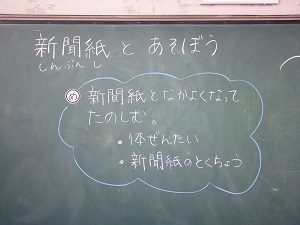 新聞紙とあそぼう
しんぶんし
め 新聞紙となかよくなって
たのしむ。
・体ぜんたい
・新聞紙のとくちょう